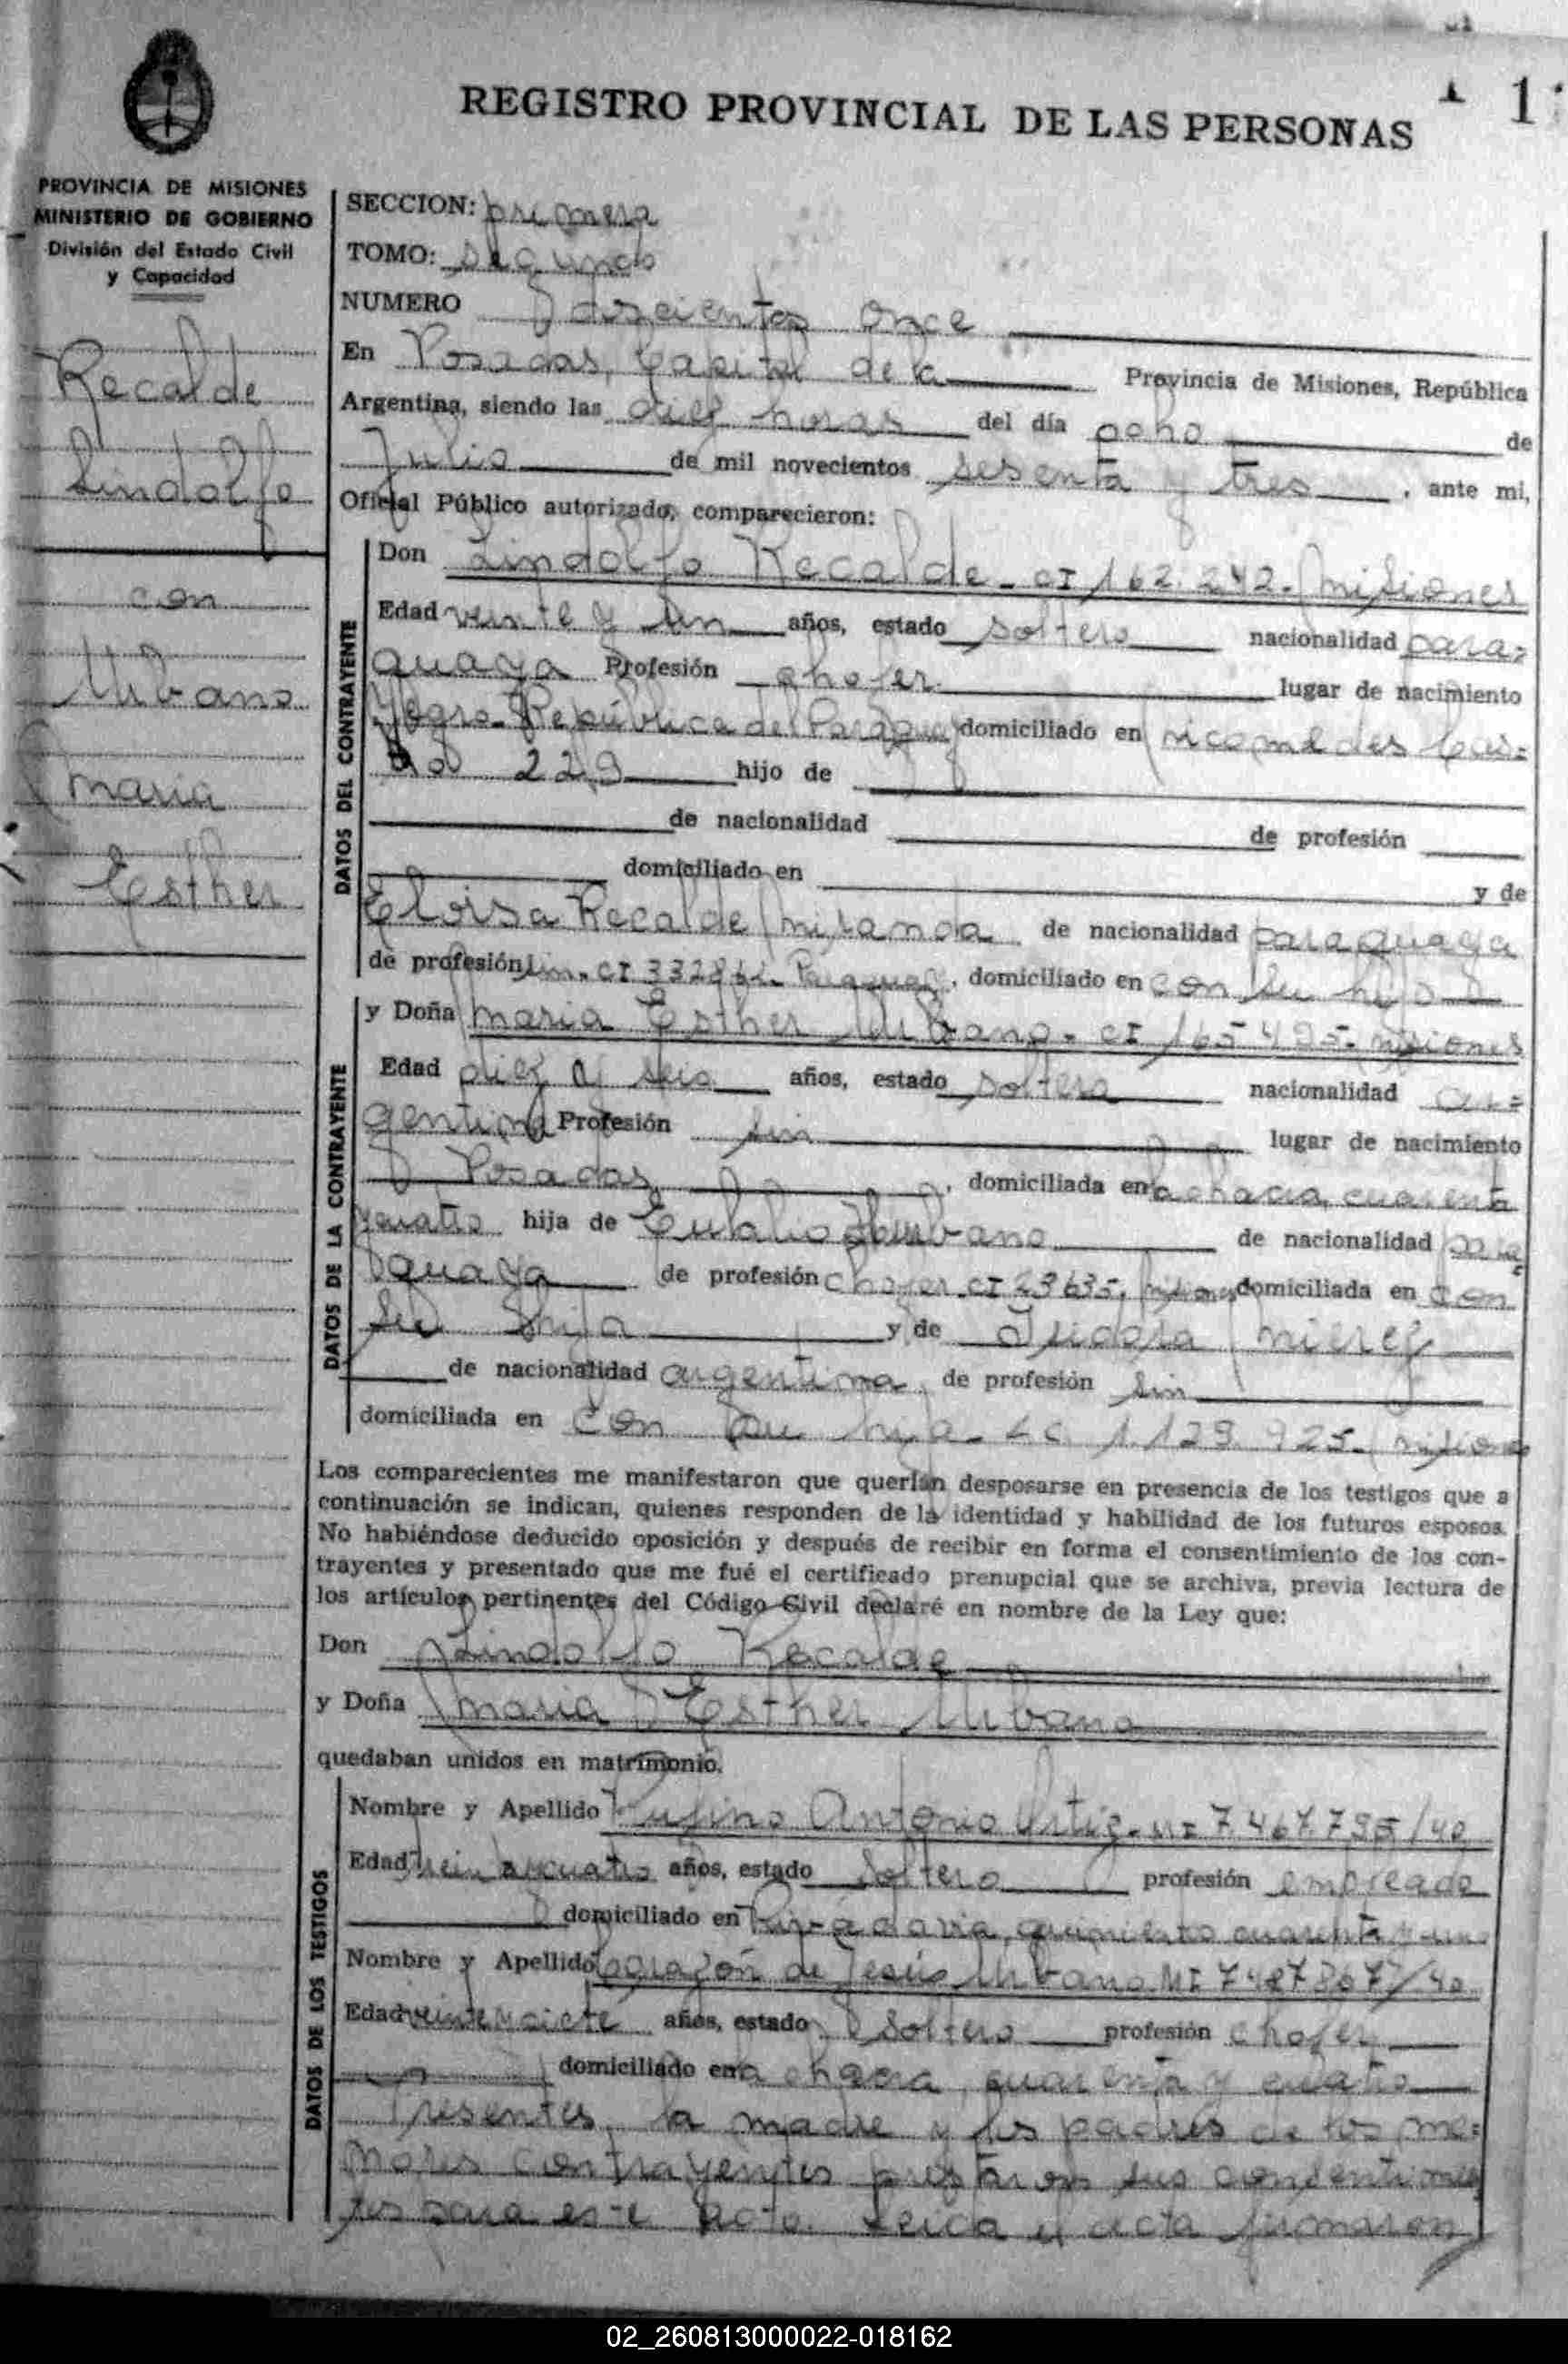 REGISTRO PROVINCIAL DE LAS PERSONAS
PROVINCIA DE MISIONES
MINISTERIO DE GOBIERNO
División del Estado Civil
y Capacidad
Recalde
Lindolfo
con
Urbano
Maria
Esther
SECCION: primera
TOMO: segundo
NUMERO doscientos once
En Posadas, Capital de la Provincia de Misiones, República
Argentina, siendo las diez horas del día ocho de
Julio de mil novecientos sesenta y tres, ante mi,
Oficial Público autorizado, comparecieron:
DATOS DEL CONTRAYENTE
Don Lindolfo Recalde - CI 162.242 - Misiones
Edad veinte y un años, estado soltero nacionalidad para=
guaya Profesión chofer lugar de nacimiento
Yegros - República del Paraguay domiciliado en Nicomedes Cas=
tro 229 hijo de
de nacionalidad de profesión
domiciliado en y de
Eloisa Recalde Miranda de nacionalidad paraguaya
de profesión sin - CI Paraguay, domiciliado en con su hijo
DATOS DE LA CONTRAYENTE
y Doña Maria Esther Urbano - CI 165495 - Misiones
Edad diez y seis años, estado soltera nacionalidad ar=
gentina Profesión sin lugar de nacimiento
Posadas, domiciliada en chacra cuarenta
y cuatro hija de Eulalio Urbano de nacionalidad para
guaya de profesión chofer CI 23635 - Misiones domiciliada en con
su hija y de Tudora Nieres
de nacionalidad argentina, de profesión sin
domiciliada en con su hija - LC 1.129.925 - Misiones
Los comparecientes me manifestaron que querían desposarse en presencia de los testigos que a
continuación se indican, quienes responden de la identidad y habilidad de los futuros esposos.
No habiéndose deducido oposición y después de recibir en forma el consentimiento de los con-
trayentes y presentado que me fué el certificado prenupcial que se archiva, previa lectura de
los artículos pertinentes del Código Civil declaré en nombre de la Ley que:
Don Lindolfo Recalde
y Doña Maria Esther Urbano
quedaban unidos en matrimonio.
DATOS DE LOS TESTIGOS
Nombre y Apellido Rufino Antonio Ortiz - MI 7.467.795/40
Edad treinta y cuatro años, estado soltero profesión empleado
domiciliado en Rivadavia, quiniento cuarenta y uno
Nombre y Apellido Corazón de Jesús Urbano MI 7487867/40
Edad veinte y siete años, estado soltero profesión chofer
domiciliado en chacra cuarenta y cuatro
Presentes, la madre y los padres de los me=
nores contrayentes prestaron sus consentimien
tos para este acto. Leida el acta firmaron
02_260813000022-018162